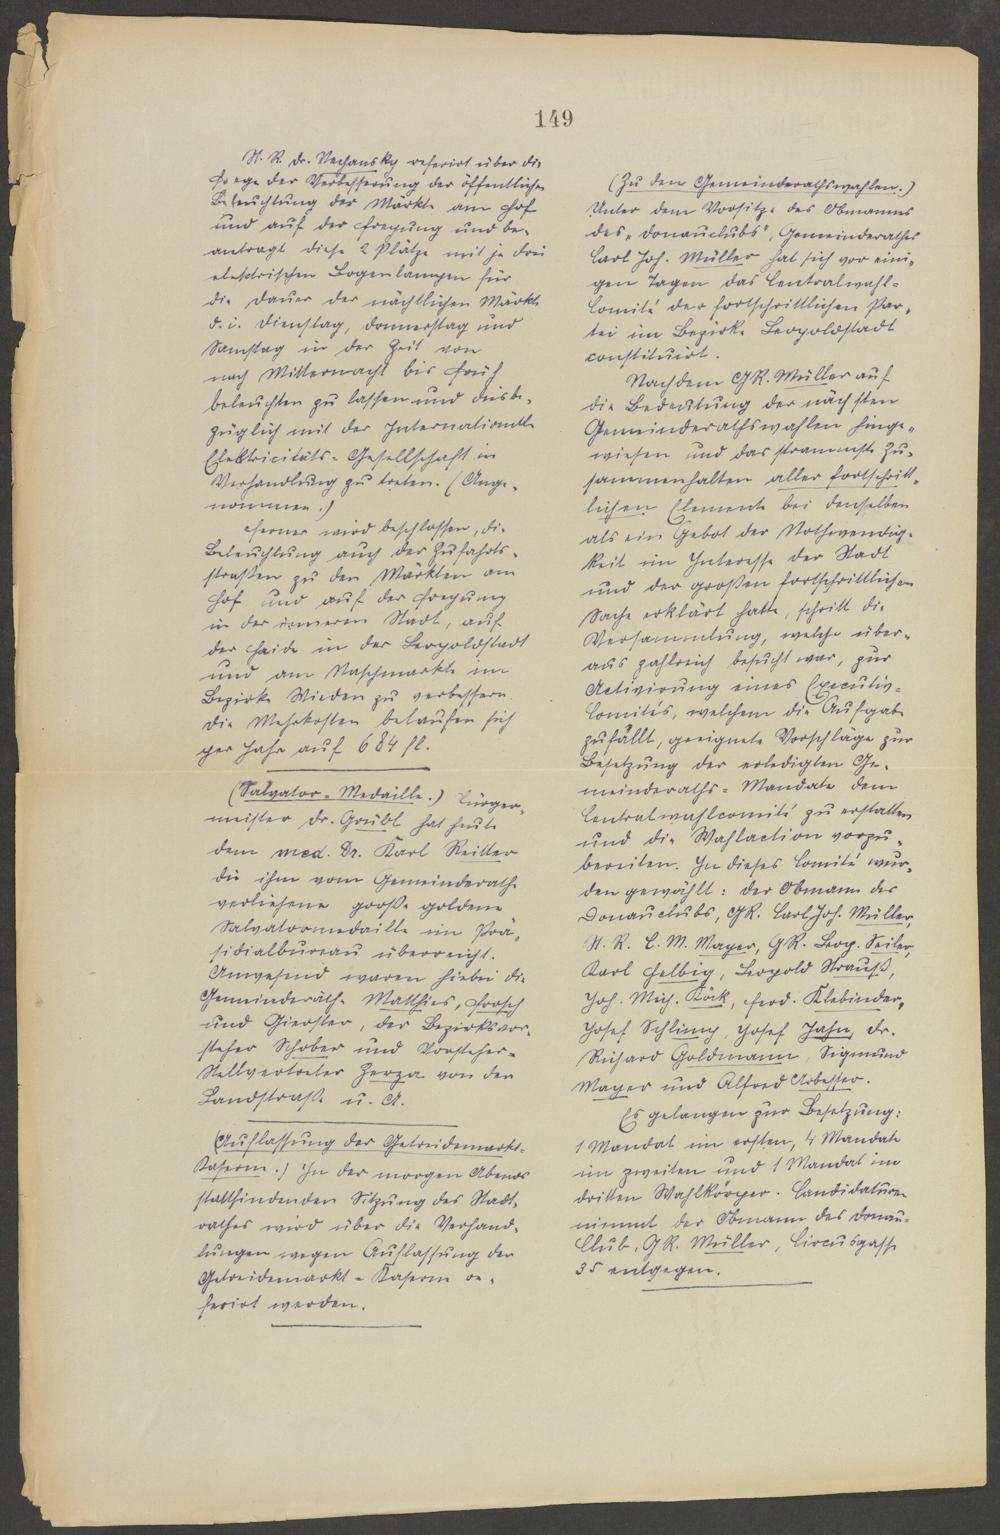 149
St. R. Dr. Nechansky referirt über die
Frage der Verbesserung der öffentlichen
Beleuchtung der Märkte am Hof
und auf der Freyung und be-
antragt diese 2 Plätze mit je drei
elektrischen Bogenlampen für
die Dauer der nächtlichen Märkte
d. i. Dienstag, Donnerstag und
Samstag in der Zeit von
nach Mitternacht bis früh
beleuchten zu lassen und diesbe-
züglich mit der Internationalen
Elektricitäts-Gesellschaft in
Verhandlung zu treten. (Ange-
nommen.)
Ferner wird beschlossen, die
Beleuchtung auch der Zufahrts-
straßen zu den Märkten am
Hof und auf der Freyung
in der inneren Stadt, auf
der Haide in der Leopoldstadt
und am Naschmarkte im
Bezirke Wieden zu verbessern.
Die Mehrkosten belaufen sich
per Jahr auf 684 fl.
(Salvator-Medaille.) Bürger-
meister Dr. Grübl hat heute
dem med. Dr. Karl Reitter
die ihm vom Gemeinderathe
verliehene große goldene
Salvatormedaille im Prä-
sidialbureau überreicht.
Anwesend waren hiebei die
Gemeinderäthe Matthies, Frosch
und Gierster, der Bezirksvor-
steher Schober und Vorsteher-
Stellvertreter Zerza von der
Landstraße u. A.
(Auflassung der Getreidemarkt-
Kaserne.) In der morgen Abends
stattfindenden Sitzung des Stadt-
rathes wird über die Verhand-
lungen wegen Auflassung der
Getreidemarkt-Kaserne re-
ferirt werden.
(Zu den Gemeinderathswahlen.)
Unter dem Vorsitze des Obmannes
des „Donauclubs", Gemeinderathes
Carl Joh. Müller hat sich vor eini-
gen Tagen das Centralwahl-
Comité der fortschrittlichen Par-
tei im Bezirke Leopoldstadt
constituirt.
Nachdem GR. Müller auf
die Bedeutung der nächsten
Gemeinderathswahlen hinge-
wiesen und das strammste Zu-
sammenhalten aller fortschritt-
lichen Elemente bei denselben
als ein Gebot der Nothwendig-
keit im Interesse der Stadt
und der großen fortschrittlichen
Sache erklärt hatte, schritt die
Versammlung, welche über-
aus zahlreich besucht war, zur
Activirung eines Executiv-
Comités, welchem die Aufgabe
zufällt, geeignete Vorschläge zur
Besetzung der erledigten Ge-
meinderaths-Mandate dem
Centralwahlcomité zu erstatten
und die Wahlaction vorzu-
bereiten. In dieses Comité wur-
den gewählt: der Obmann des
Donauclubs, GR. Carl Joh. Müller,
St. R. C. M. Mayer, GR. Leop. Seiler,
Karl Helbig, Leopold Strauß,
Joh. Mich. Köck, Ferd. Klebinder,
Josef Schlimp, Josef Jahn, Dr.
Richard Goldmann, Sigmund
Mayer und Alfred Arbesser.
Es gelangen zur Besetzung:
1 Mandat im ersten, 4 Mandate
im zweiten und 1 Mandat im
dritten Wahlkörper. Candidaturen
nimmt der Obmann des Donau-
Club, GR. Müller, Circusgasse
35 entgegen.